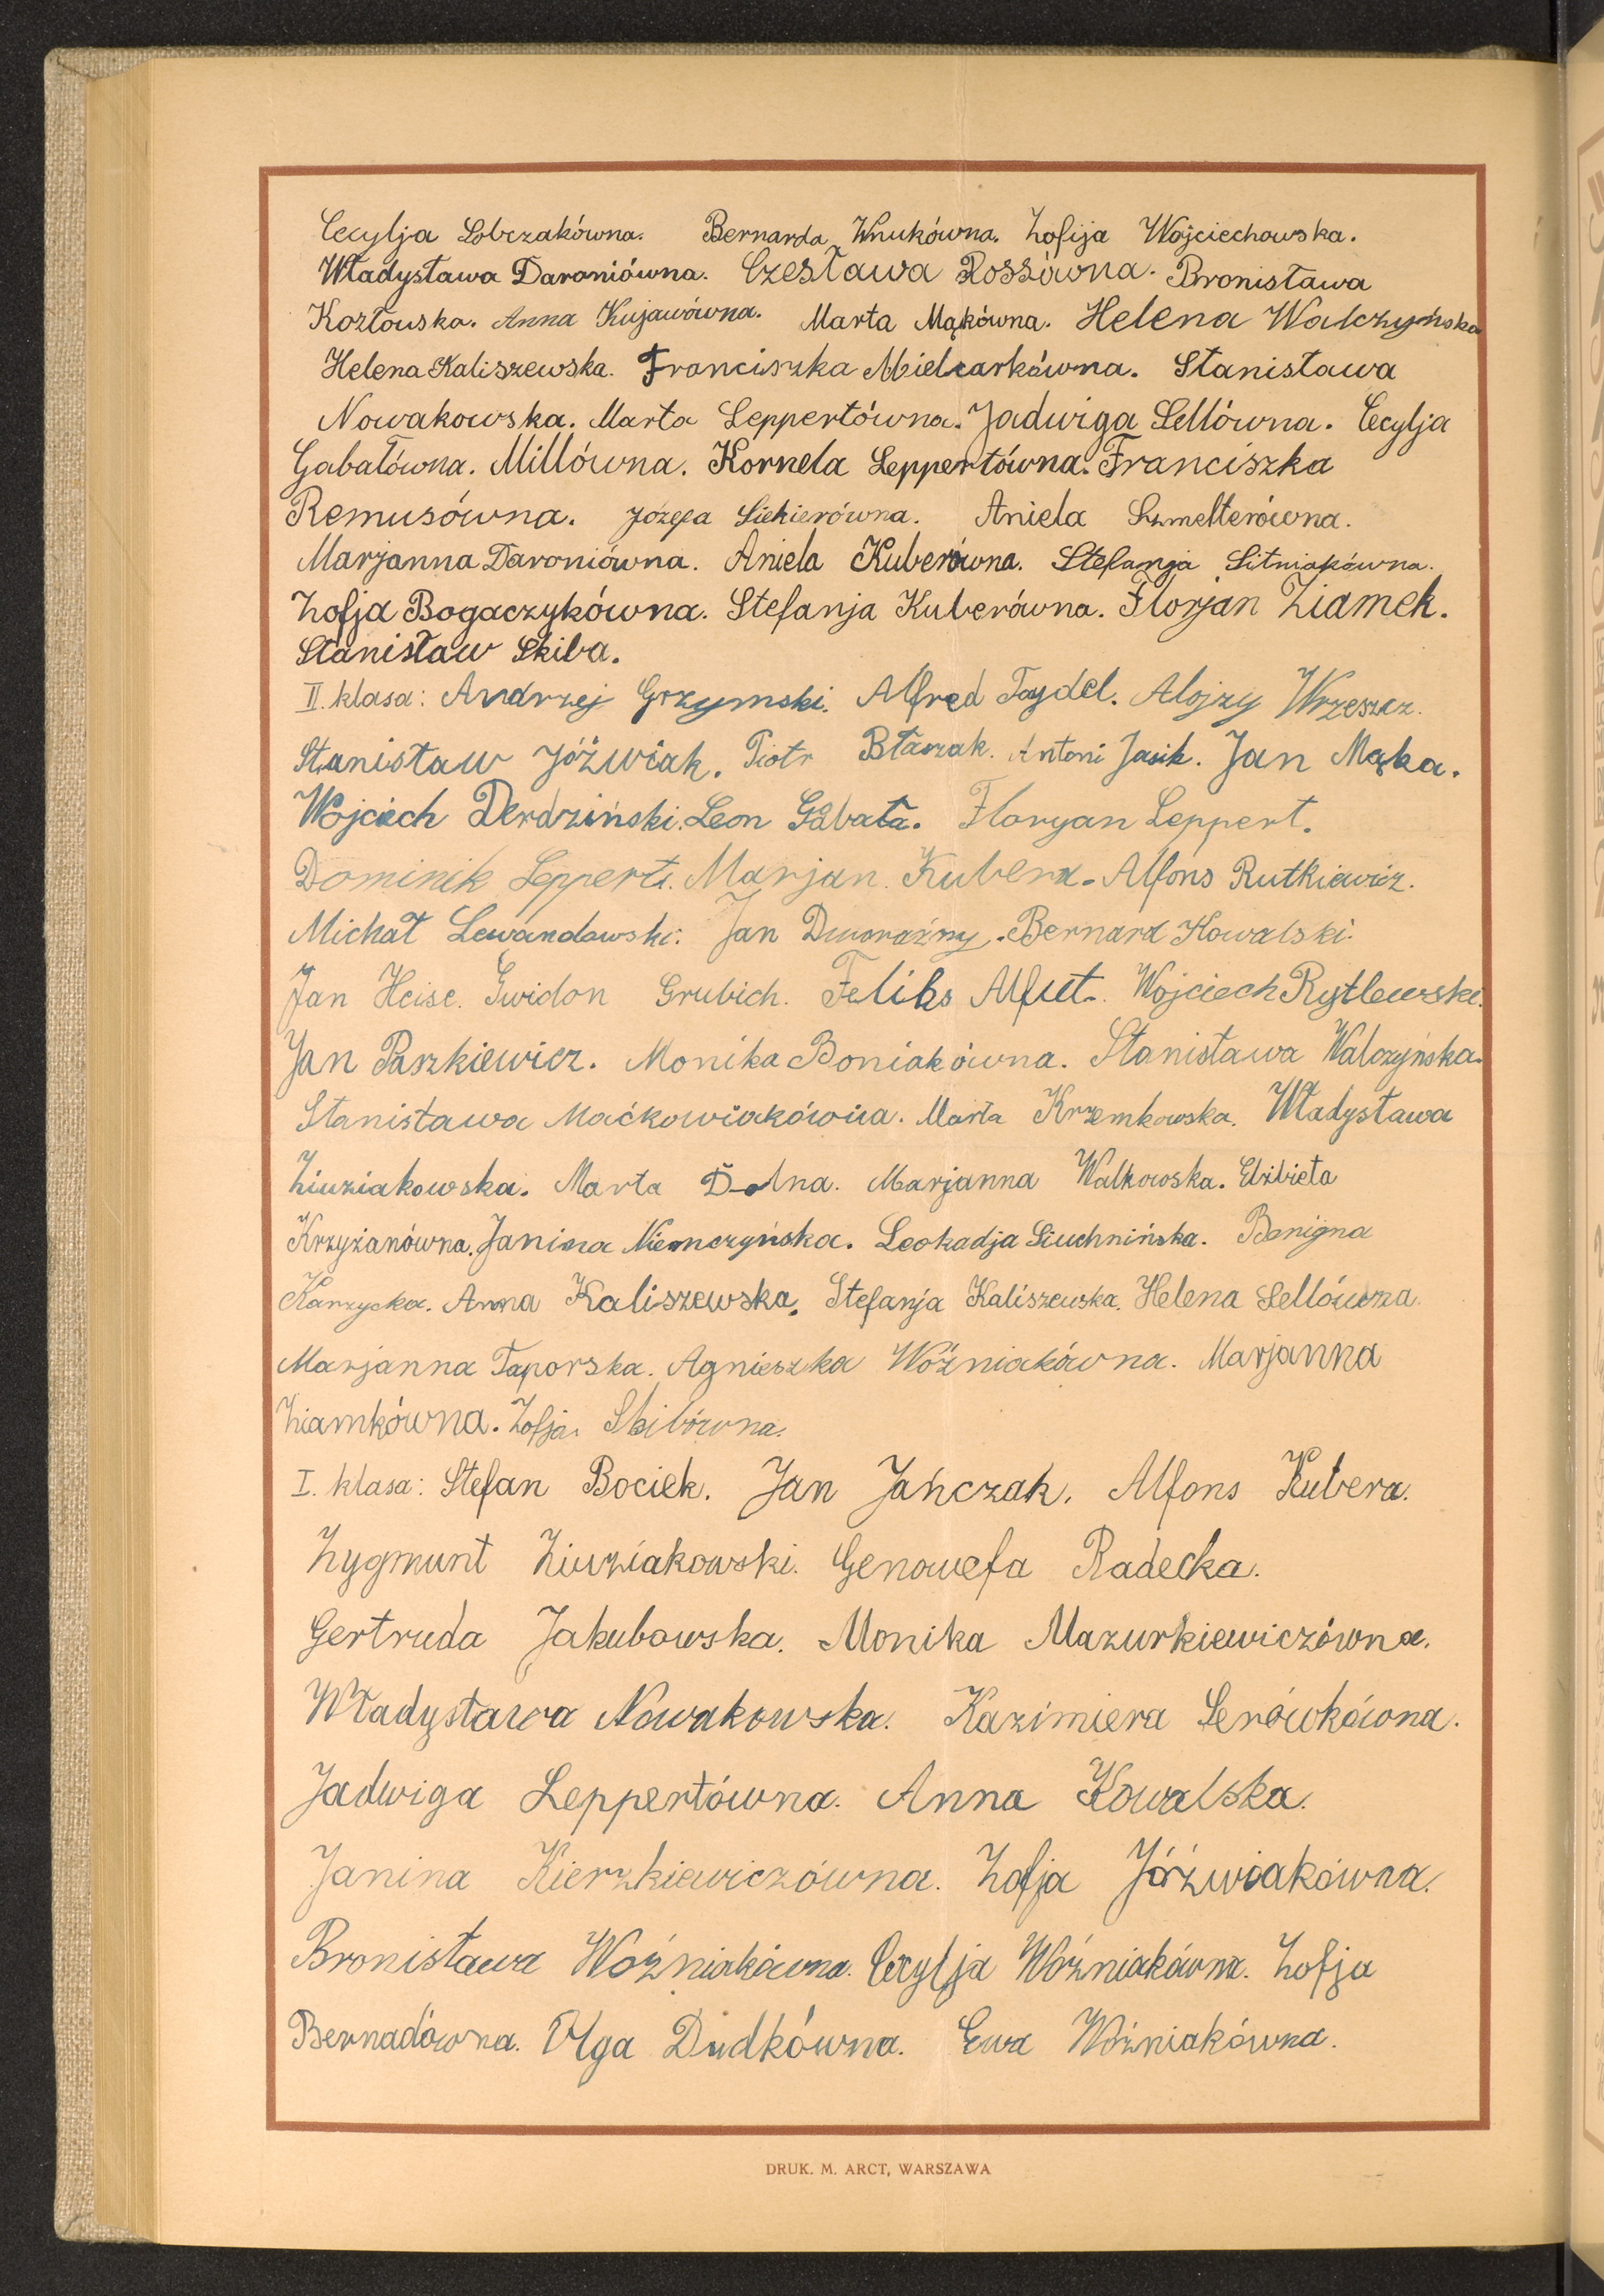 Cecylja Lobczakówna. Bernarda Wnukówna. Zofija Wojciechowska.
Władysława Daroniówna. Czesława Rossówna. Bronisława
Kozłowska. Anna Kujawówna. Marta Mąkówna. Helena Walczyńska
Helena Kaliszewska. Franciszka Mielcarkówna. Stanisława
Nowakowska. Marta Leppertówna. Jadwiga Lellówna. Cecylja
Gabałówna. Millówna. Kornela Leppertówna. Franciszka
Remusówna. Józefa Siekierówna. Aniela Szmelterówna.
Marjanna Daroniówna. Aniela Kuberówna. Stefanja Sitniakówna.
Zofja Bogaczykówna. Stefanja Kuberówna. Florjan Ziamek.
Stanisław Skiba.
II. klasa: Andrzej Grzymski. Alfred Taydel. Alojzy Wrzeszcz.
Stanisław Jóźwiak. Piotr Błaszak. Antoni Jasik. Jan Mąka.
Wojciech Derdziński. Leon Gabała. Floryan Leppert.
Dominik Leppert. Marjan Kubera. Alfons Rutkiewicz.
Michał Lewandowski. Jan Dworaźny. Bernard Kowalski.
Jan Heise. Gwidon Grubich. Feliks Alfut. Wojciech Rytlewski.
Jan Paszkiewicz. Monika Boniakówna. Stanisława Walczyńska.
Stanisława Maćkowiakówna. Marta Krzemkowska. Władysława
Ziuziakowska. Marta Marjanna Walkowska. Elżbieta
Krzyżanówna. Janina Niemczyńska. Leokadja Siuchnińska. Benigna
Karzycka. Anna Kaliszewska. Stefanja Kaliszewska. Helena Lellówna.
Marjanna Taporska. Agnieszka Woźniakówna. Marjanna
Ziamkówna. Zofja Skibówna.
I. klasa: Stefan Bociek. Jan Jańczak. Alfons Kubera.
Zygmunt Ziuziakowski. Genowefa Radecka.
Gertruda Jakubowska. Monika Mazurkiewiczówna.
Władysława Nowakowska. Kazimiera Serówkówna.
Jadwiga Leppertówna. Anna Kowalska.
Janina Kierzkiewiczówna. Zofja Jóźwiakówna.
Bronisława Woźniakówna. Cecylja Woźniakówna. Zofja
Bernadówna. Olga Dudkówna. Ewa Woźniakówna.
DRUK. M. ARCT, WARSZAWA